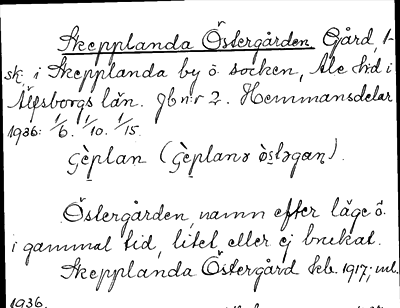 Skepplanda Östergården Gård, 1-
sk. i Skepplanda by o socken, Ale hd i
Älfsborgs län. Jb nr 2. Hemmansdelar
1936: 1/6. 1/10. 1/15.
Östergården, namn efter läge ö.
i gammal tid, litet eller ej brukat.
Skepplanda Östergård kb. 1917; ml.
1936.